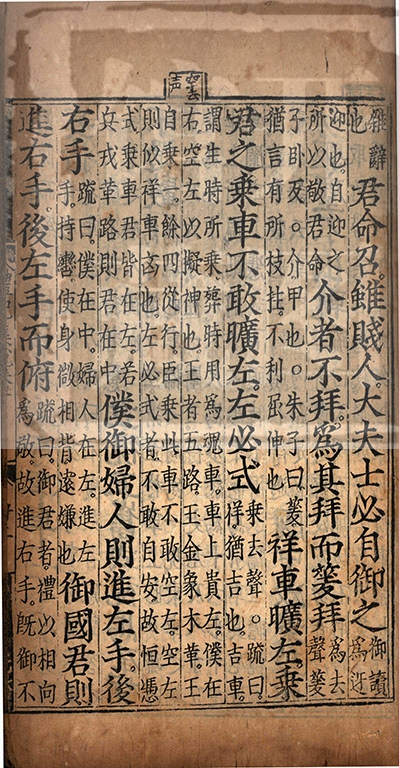 雜辭
也
君命召。雖賤人。大夫士必自御之
御讀
為迓
迎也。自迎之
所以敬君命
介者不拜。為其拜而蓌拜
為去
聲蓌
子卧反。介甲也。朱子曰。蓌
猶言有所枝拄。不利屈伸也
祥車曠左。乘
君之乘車不敢曠左。左必式
乘去聲。疏曰。
祥猶吉也。吉車。
謂生時所乘葬時用為魂車。車上貴左。僕在
右空左以擬神也。王者五路。玉金象木革。王
自乘一。餘四從行。臣乘此車不敢空左。空左
則似祥車。凶也。左必式者。不敢自安。故恒憑
式。乘車君皆在左。若
兵戎革路則君在中
僕御婦人則進左手。後
右手
疏曰。僕在中。婦人在左。進左
手持轡。使身微相背。遠嫌也
御國君則
進右手。後左手而俯
疏曰。御君者。禮以相向
為敬。故進右手。既御不